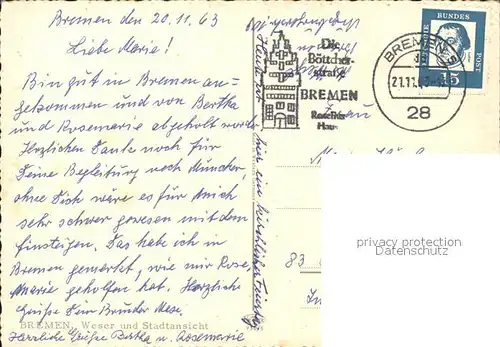 Bremen den 20.11.63
Liebe Marie!
Bin gut in Bremen an-
gekommen und von Bertha
und Rosemarie abgeholt worden
Herzlichen Dank noch für
Deine Begleitung nach München,
ohne Dich wäre es für mich
sehr schwer gewesen mit dem
Einsteigen. Das habe ich in
Bremen gemerkt, wie mir Rose
Marie geholfen hat. Herzliche
Grüße Dein Bruder
BREMEN, Weser und Stadtansicht
Herzliche Grüße Bertha u. Rosemarie
Heute ist
hier ein kirchlicher Feiertag
Die
Böttcher-
straße
BREMEN
Roselius
Haus
BREMEN 5
21.11.
28
DEUTSCHE BUNDESPOST
15
Frau
83
privacy protection
Datenschutz